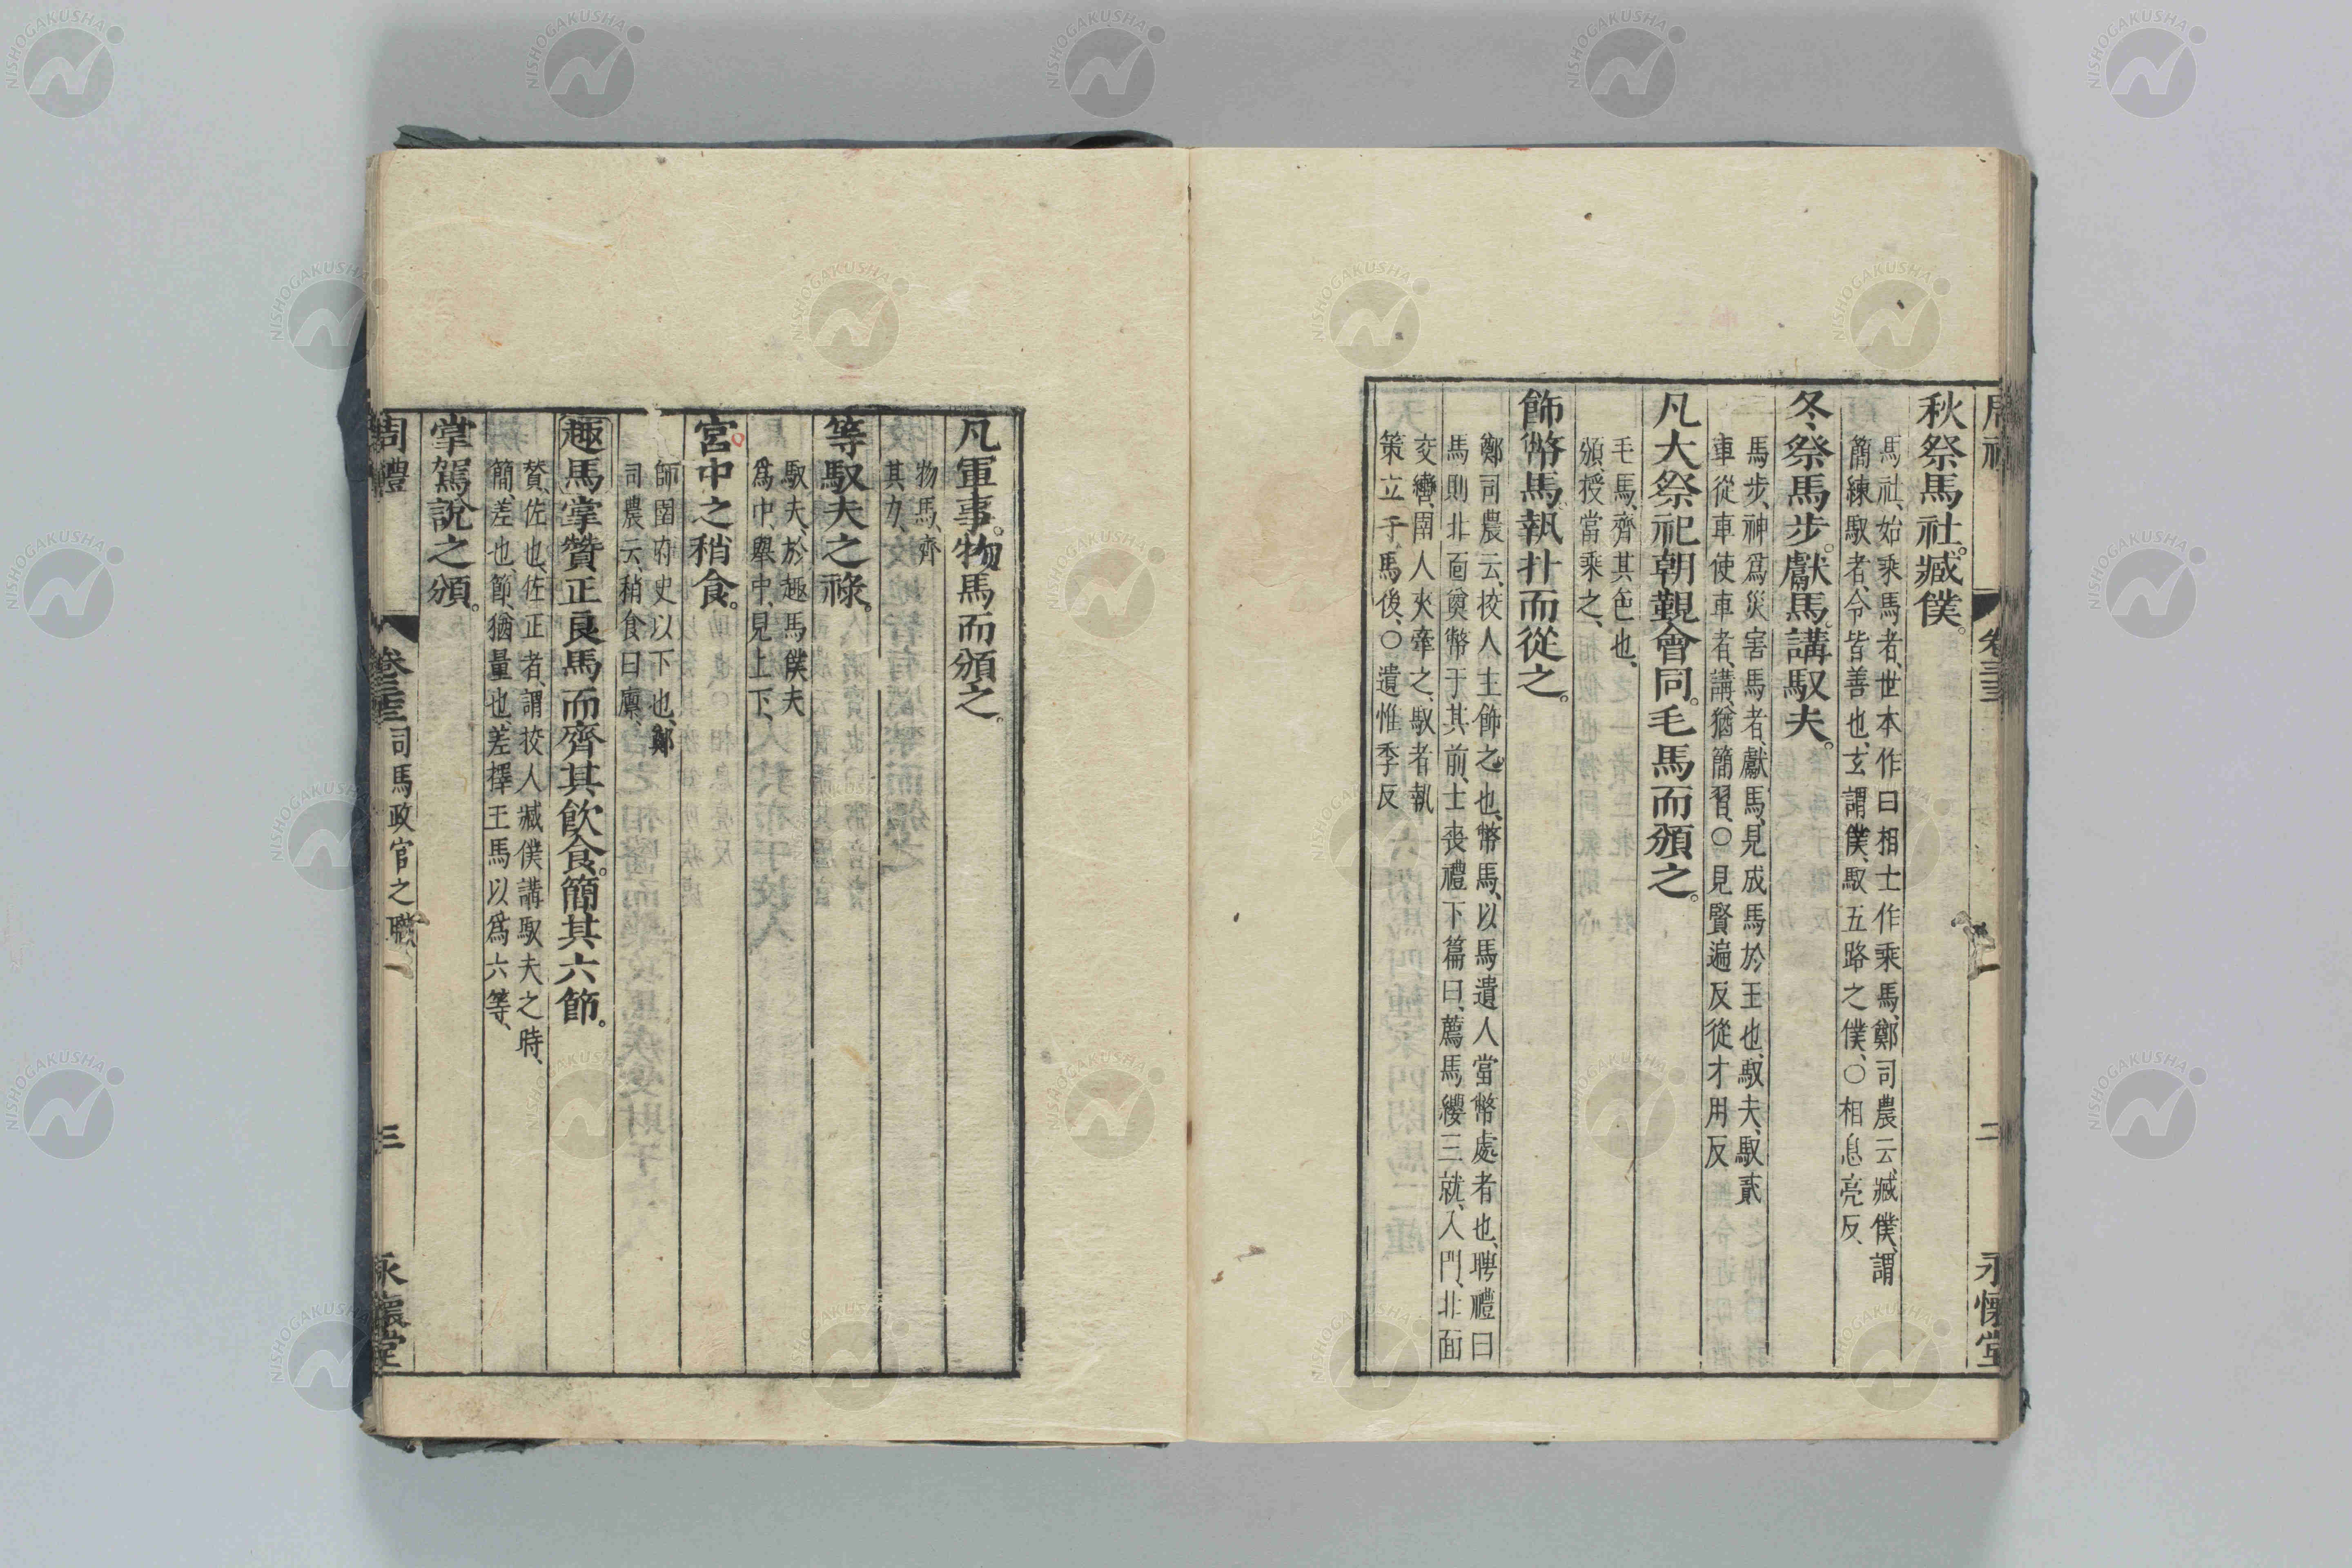 秋祭馬社。臧僕。
馬社、始乘馬者、世本作曰相士作乘馬、鄭司農云臧僕、謂
簡練馭者、令皆善也、玄謂僕、馭五路之僕、〇相息亮反、
冬祭馬步。獻馬。講馭夫。
馬步、神爲災害馬者、獻馬、見成馬於王也、馭夫、馭貳
車從車使車者、講、猶簡習、〇見賢遍反從才用反
凡大祭祀朝覲會同。毛馬而頒之。
毛馬、齊其色也、
頒授當乘之、
飾幣馬。執扑而從之。
鄭司農云、挍人主飾之也、幣馬、以馬遺人當幣處者也、聘禮曰
馬則北面奠幣于其前、士喪禮下篇曰、薦馬纓三就、入門、北面
交轡、圉人夾牽之、馭者執
策立于馬後、〇遺惟季反
卷三三
二
永懷堂
凡軍事。物馬而頒之。
物馬、齊
其力、
等馭夫之祿。
馭夫、於趣馬僕夫
爲中、舉中、見上下、
宮中之稍食。
師圉府史以下也、鄭
司農云、稍食曰廪、
趣馬掌贊正良馬而齊其飲食。簡其六節。
贊、佐也、佐正者、謂挍人臧僕講馭夫之時、
簡、差也、節、猶量也、差擇王馬以爲六等、
掌駕說之頒。
周禮
卷三三
司馬政官之職
三
永懷堂
NISHOGAKUSHA